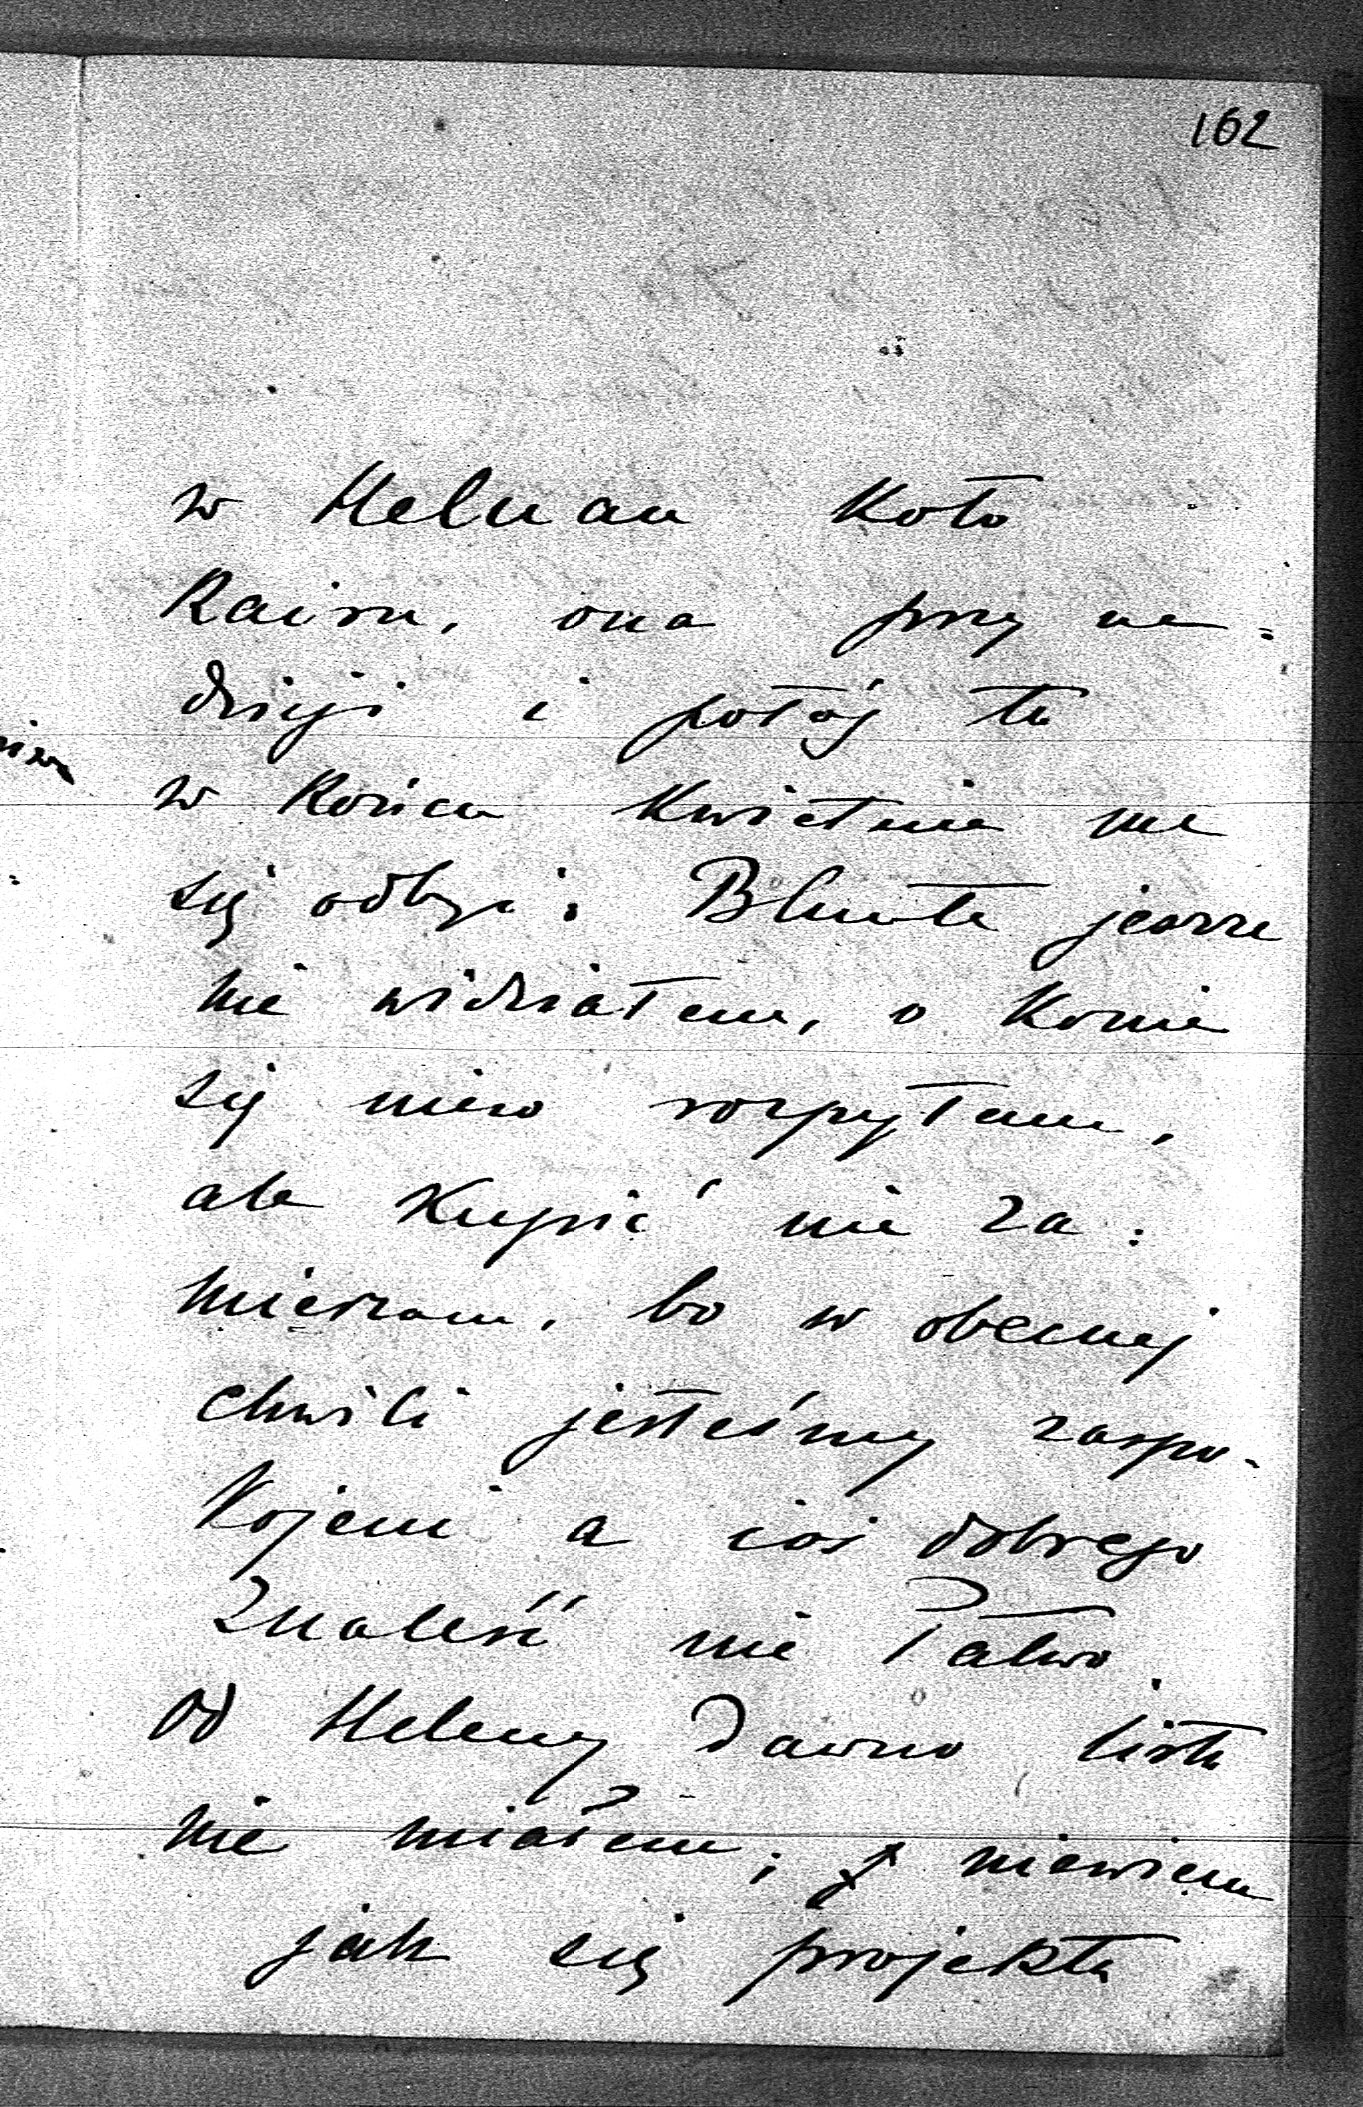 162
w Heluan koło
Kairu, ona przy na=
dzieji i połóg tu
w końcu kwietnia ma
się odbyć. Blunta jeszcze
nie widziałem, o konie
się nieco rozpytam,
ale kupić nie za=
mierzam, bo w obecnej
chwili jesteśmy zaspo-
kojeni a coś dobrego
znaleść nie łatwo.
Od Heleny dawno listu
nie miałem; niewiem
jak się projekta